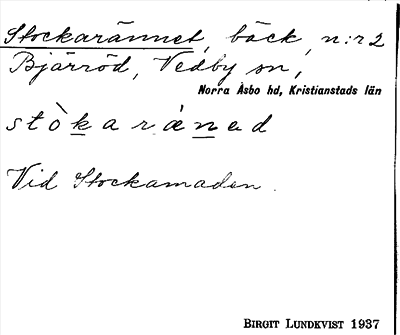 Stockarännet, bäck, n:r 2
Bjärröd, Vedby sn,
Norra Åsbo hd, Kristianstads län
stòkaränad
Vid Stockamaden.
BIRGIT LUNDKVIST 1937